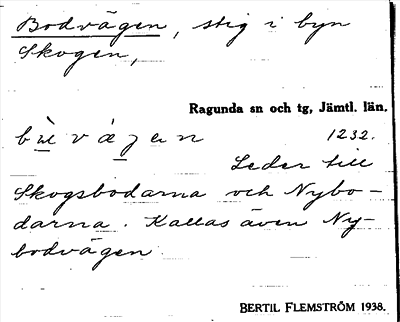 Bodvägen, stig i byn
Skogen,
Ragunda sn och tg, Jämtl. län.
1232.
Leder till
Skogsbodarna och Nybo-
darna. Kallas även Ny-
bodvägen.
BERTIL FLEMSTRÖM 1938.